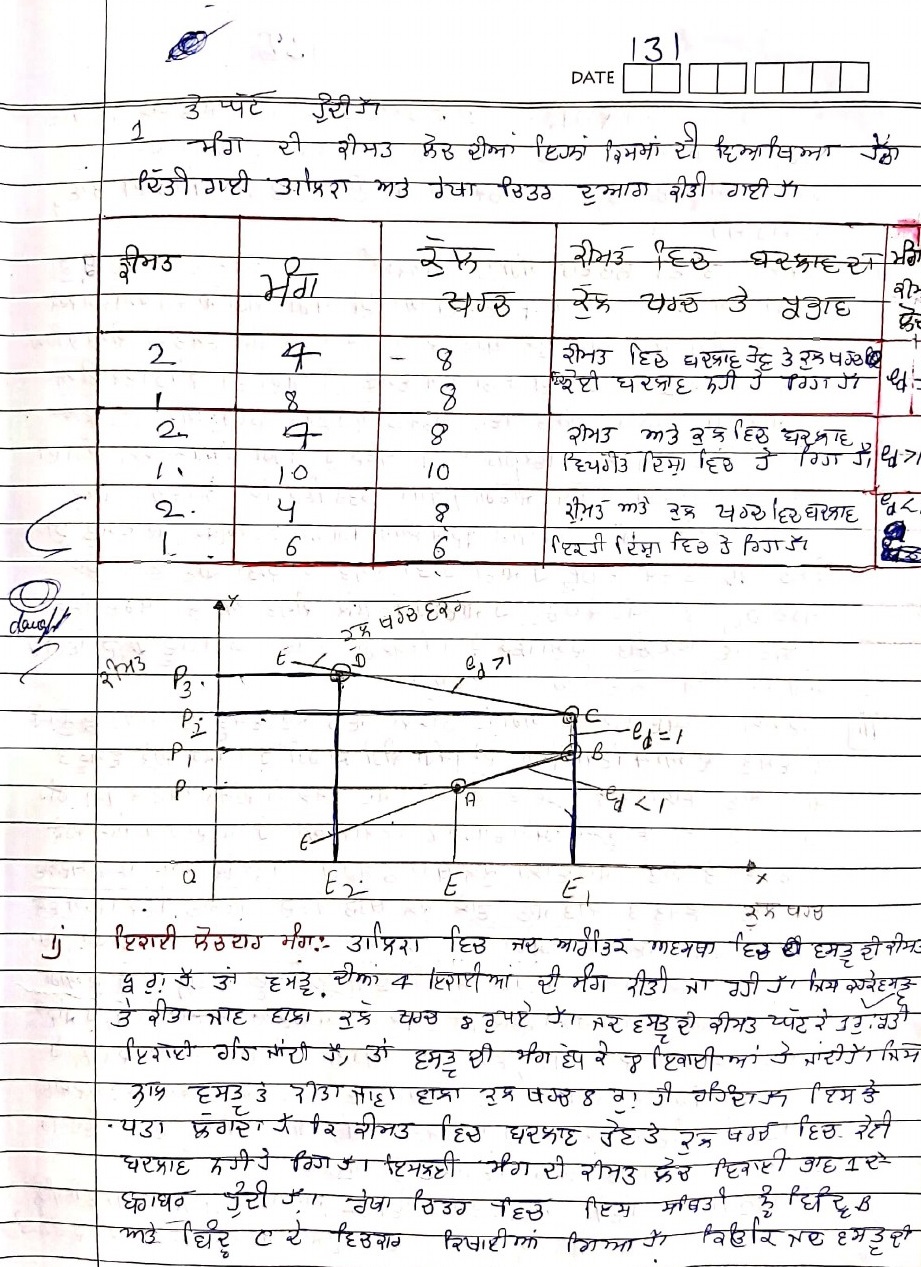 131
DATE
ਤੇ ਘੱਟ ਹੁੰਦੀ ਹੈ।
1 ਮੰਗ ਦੀ ਕੀਮਤ ਲੋਚ ਦੀਆਂ ਇਹਨਾਂ ਕਿਸਮਾਂ ਦੀ ਵਿਆਖਿਆ ਹੇਠ
ਦਿੱਤੀ ਗਈ ਤਾਲਿਕਾ ਅਤੇ ਰੇਖਾ ਚਿਤਰ ਦੁਆਰਾ ਕੀਤੀ ਗਈ ਹੈ।
ਕੀਮਤ ਮੰਗ ਕੁੱਲ ਖਰਚ ਕੀਮਤ ਵਿਚ ਬਦਲਾਵ ਦਾ ਕੁੱਲ ਖਰਚ ਤੇ ਪ੍ਰਭਾਵ ਮੰਗ ਕੀਮ ਲੋਚ
2 4 - 8 ਕੀਮਤ ਵਿਚ ਬਦਲਾਵ ਹੋਣ ਤੇ ਕੁਲ ਖਰਚ
1 8 8 ਕੋਈ ਬਦਲਾਵ ਨਹੀ ਹੋ ਰਿਹਾ ਹੈ।
2. 4 8 ਕੀਮਤ ਅਤੇ ਕੁਲ ਵਿਚ ਬਦਲਾਵ
1. 10 10 ਵਿਪਰੀਤ ਦਿਸ਼ਾ ਵਿਚ ਹੋ ਰਿਹਾ ਹੈ।
2. 4 8 ਕੀਮਤ ਅਤੇ ਕੁਲ ਖਰਚ ਵਿਚ ਬਦਲਾਵ
1. 6 6 ਇਕਹੀ ਦਿਸ਼ਾ ਵਿਚ ਹੋ ਰਿਹਾ ਹੈ।
Y
ਕੁਲ ਖਰਚ ਵਕਰ
ਕੀਮਤ
E D
P3
P2 C
P1 B
P A
E
O E2 E E1 X
ਕੁਲ ਖਰਚ
ij ਇਕਾਈ ਲੋਚਦਾਰ ਮੰਗ:- ਤਾਲਿਕਾ ਵਿਚ ਜਦ ਆਰੰਭਿਕ ਅਵਸਥਾ ਵਿਚ ਵਸਤੂ ਦੀ ਕੀਮਤ
2 ਰੁ: ਹੈ ਤਾਂ ਵਸਤੂ ਦੀਆਂ 4 ਇਕਾਈਆਂ ਦੀ ਮੰਗ ਕੀਤੀ ਜਾ ਰਹੀ ਹੈ। ਜਿਸ ਕਰਕੇ ਵਸਤੂ
ਤੇ ਕੀਤਾ ਜਾਣ ਵਾਲਾ ਕੁਲ ਖਰਚ 8 ਰੁਪਏ ਹੈ। ਜਦ ਵਸਤੂ ਦੀ ਕੀਮਤ ਘੱਟ ਕੇ 1 ਰੁ: ਪ੍ਰਤੀ
ਇਕਾਈ ਰਹਿ ਜਾਂਦੀ ਹੈ, ਤਾਂ ਵਸਤੂ ਦੀ ਮੰਗ ਵਧ ਕੇ 8 ਇਕਾਈਆਂ ਹੋ ਜਾਂਦੀ ਹੈ। ਜਿਸ
ਨਾਲ ਵਸਤੂ ਤੇ ਕੀਤਾ ਜਾਣ ਵਾਲਾ ਕੁਲ ਖਰਚ 8 ਰੁ: ਹੀ ਰਹਿੰਦਾ ਹੈ ਇਸ ਤੋਂ
ਪਤਾ ਲੱਗਦਾ ਹੈ ਕਿ ਕੀਮਤ ਵਿਚ ਬਦਲਾਵ ਹੋਣ ਤੇ ਕੁਲ ਖਰਚ ਵਿਚ ਕੋਈ
ਬਦਲਾਵ ਨਹੀ ਹੋ ਰਿਹਾ ਹੈ। ਇਸਲਈ ਮੰਗ ਦੀ ਕੀਮਤ ਲੋਚ ਇਕਾਈ ਭਾਵ 1 ਦੇ
ਬਰਾਬਰ ਹੁੰਦੀ ਹੈ। ਰੇਖਾ ਚਿਤਰ ਵਿਚ ਇਸ ਸਥਿਤੀ ਨੂੰ ਬਿੰਦੂ B
ਅਤੇ ਬਿੰਦੂ C ਦੇ ਵਿਚਕਾਰ ਦਿਖਾਈਆਂ ਗਿਆ ਹੈ। ਕਿਉਂਕਿ ਜਦ ਵਸਤੂ ਦੀ